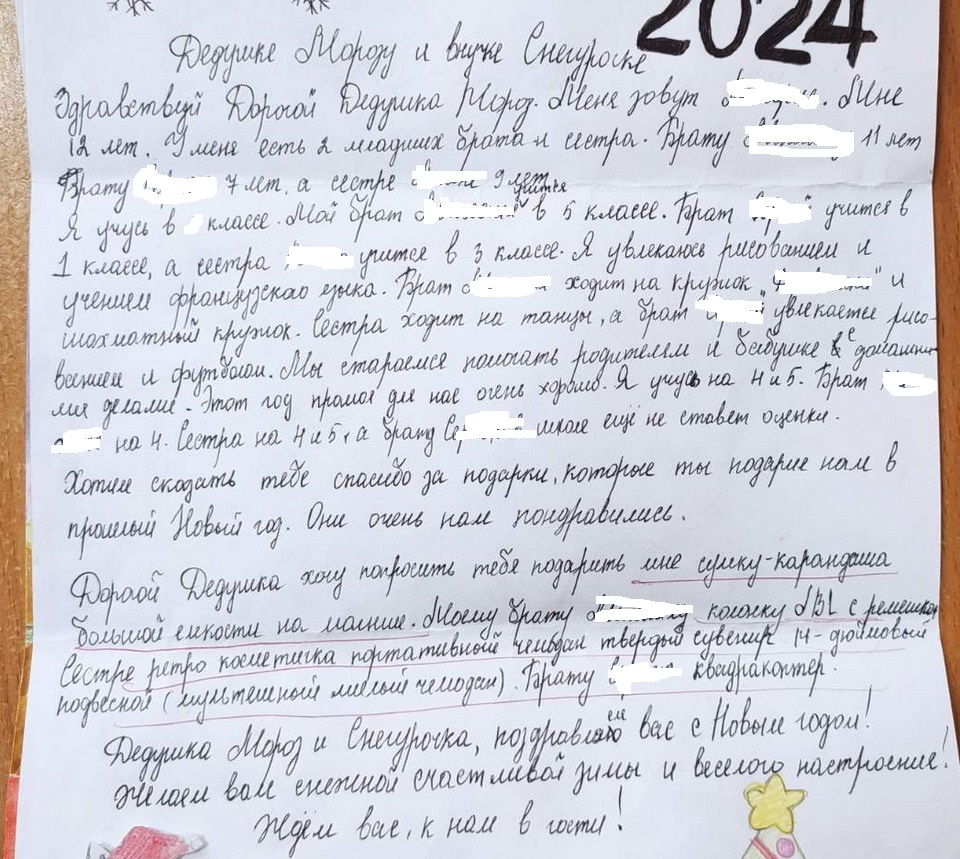 2024
Дедушке Морозу и внучке Снегуроске
Здравствуй Дорогой Дедушка Мороз. Меня зовут . Мне
12 лет. У меня есть 2 младших брата и сестра. Брату 11 лет
Брату 7 лет, а сестре 9 лет
Я учусь в классе. Мой брат учится в 5 классе. Брат учится в
1 классе, а сестра учится в 3 классе. Я увлекаюсь рисованием и
учением французского языка. Брат ходит на кружок " " и
шахматный кружок. Сестра ходит на танцы, а брат увлекается рисо-
ванием и футболом. Мы стараемся помогать родителям и бабушке с домашни-
ми делами. Этот год прошел для нас очень хорошо. Я учусь на 4 и 5. Брат
на 4. Сестра на 4 и 5, а брату школе ещё не ставят оценки.
Хотим сказать тебе спасибо за подарки, которые ты подарил нам в
прошлый Новый год. Они очень нам пондравились.
Дорогой Дедушка хочу попросить тебя подарить мне сумку-карандаша
большой емкости на молнии. Моему брату колонку JBL с ремешком
Сестре ретро косметичка портативной чемодан твердый сувенир 14-дюймовый
подвесной (мультяшной милый чемодан). Брату квадракоптер.
Дедушка Мороз и Снегурочка, поздравляем вас с Новым годом!
Желаем вам снежной счастливой зимы и веселого настроение!
Ждём вас, к нам в гости!